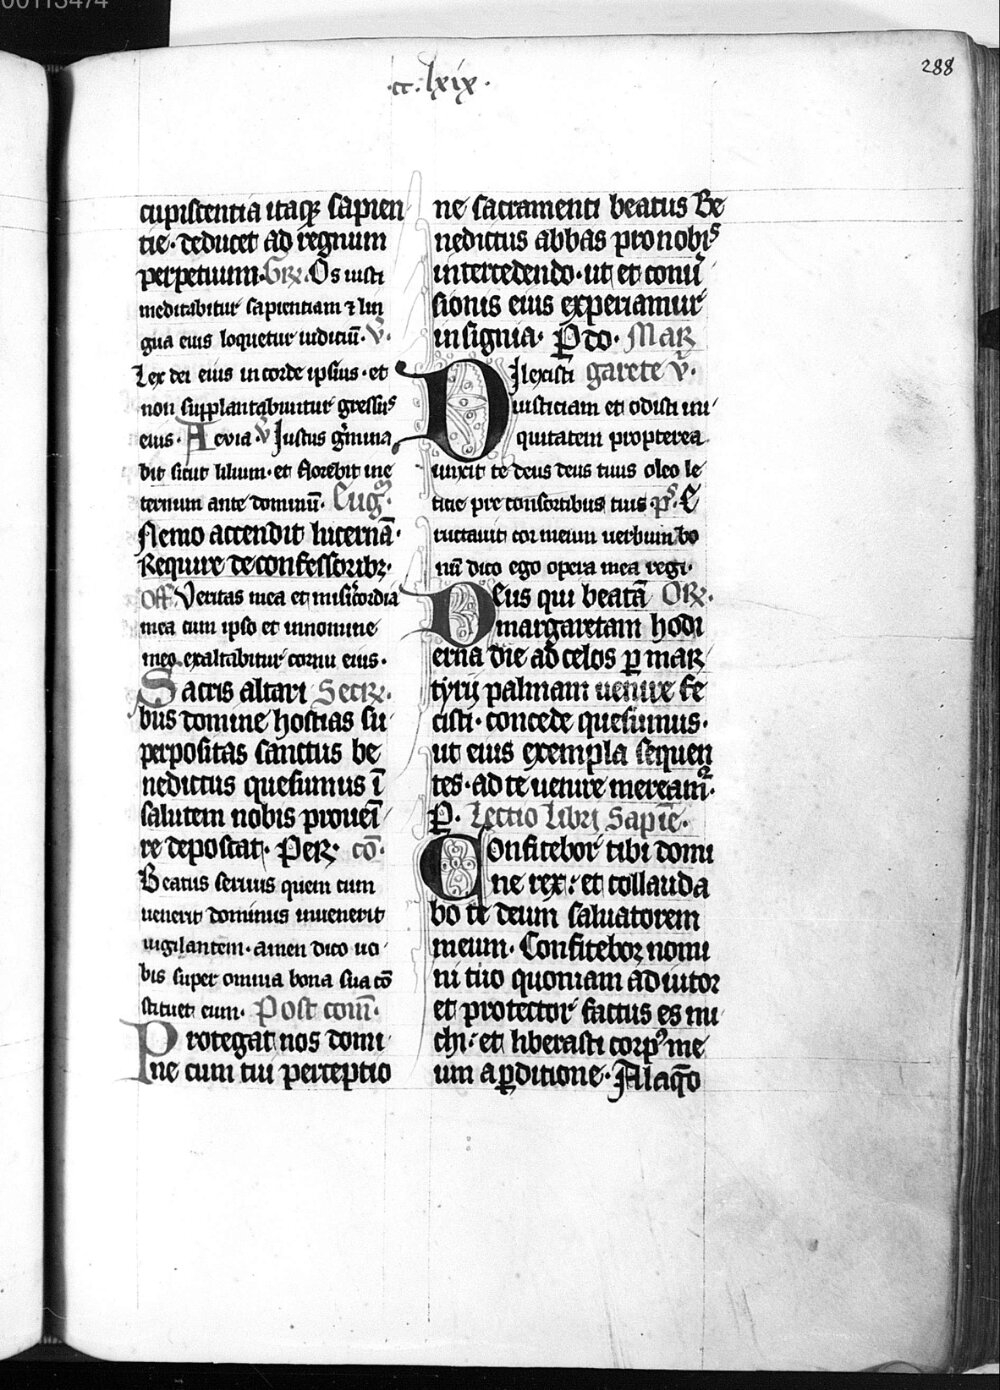 00113474
288
·cc·lxix·
cupiscentia itaqꝫ sapien
tie· deducet ad regnum
perpetuum· Gr̄. Os iusti
meditabitur sapientiam ⁊ lin
gua eius loquetur iudiciū· v̄·
Lex dei eius in corde ipsius· et
non supplantabuntur gressus
eius· Aevia· v̄ Justus gͥmina
bit sicut lilium· et florebit ine
ternum ante dominū· Eug̅·
Nemo accendit lucernā·
Require de confessoribꝫ·
Off. Veritas mea et misicordia
mea cum ipso et in nomine
meo exaltabitur cornu eius·
Sacris altari Secr̄·
bus domine hostias su
perpositas sanctus be
nedictus quesumus ī
salutem nobis proueī
re deposcat· Per· cō·
Beatus seruus quem cum
uenerit dominus inuenerit
uigilantem· amen dico uo
bis super omnia bona sua cō
stituet eum· Post com̄·
Protegat nos domi
ne cum tui perceptio
ne sacramenti beatus Be
nedictus abbas pro nobis
intercedendo· ut et conuͥ
sionis eius experiamur
insignia· ꝑ do· Mar
Dilexisti garete v̄·
iusticiam et odisti ini
quitatem propterea
unxit te deus deus tuus oleo le
ticie pre consortibus tuis pˢ· E
ructauit cor meum uerbum bo
nū dico ego opera mea regi·
Deus qui beatā Or̄·
margaretam hodi
erna die ad celos ꝑ mar
tyrij palmam uenire fe
cisti· concede quesumus·
ut eius exempla sequen
tes· ad te uenire mereamr̄·
ꝑ. Lectio libri Sapie̅·
Confitebor tibi domi
ne rex: et collauda
bo te deum saluatorem
meum· Confitebor nomi
ni tuo quoniam adiutor
et protector factus es mi
chi: et liberasti corpꝰ me
um a ꝑditione· A laq̄o